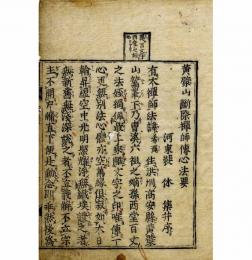 黃檗山斷際禪師傳心法要
河東裴休集并序
有大禪師法諱希運住洪州高安縣黃檗
山鷲峯下乃曹溪六祖之嫡孫西堂百丈
之法姪獨佩最上乘離文字之印唯傳一
心更無別法心體亦空萬緣俱寂如大日
輪昇虛空中光明照耀淨無纖埃證之者
無新舊無淺深說之者不立義解不立宗
主不開戶牖直下便是動念則乖然後為